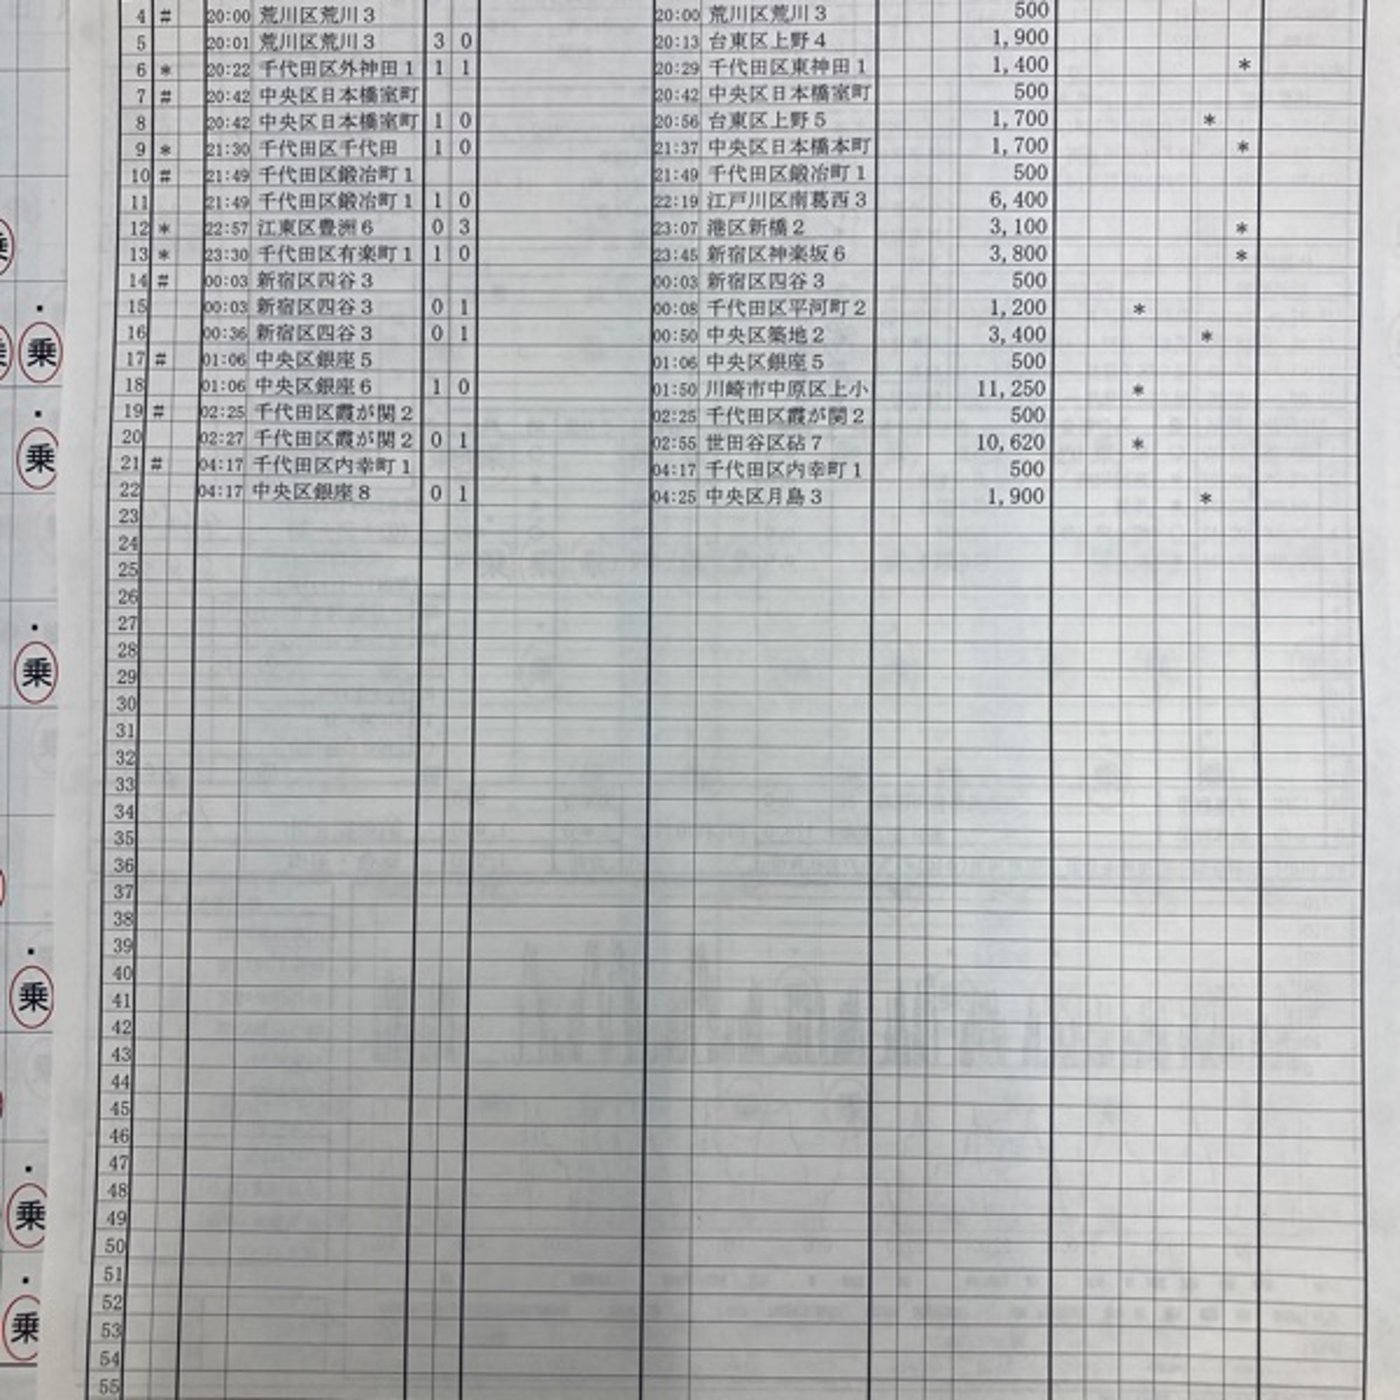 4 # 20:00 荒川区荒川3 20:00 荒川区荒川3 500
5 20:01 荒川区荒川3 3 0 20:13 台東区上野4 1,900
6 * 20:22 千代田区外神田1 1 1 20:29 千代田区東神田1 1,400 *
7 # 20:42 中央区日本橋室町 20:42 中央区日本橋室町 500
8 20:42 中央区日本橋室町 1 0 20:56 台東区上野5 1,700 *
9 * 21:30 千代田区千代田 1 0 21:37 中央区日本橋本町 1,700 *
10 # 21:49 千代田区鍛冶町1 21:49 千代田区鍛冶町1 500
11 21:49 千代田区鍛冶町1 1 0 22:19 江戸川区南葛西3 6,400
12 * 22:57 江東区豊洲6 0 3 23:07 港区新橋2 3,100 *
13 * 23:30 千代田区有楽町1 1 0 23:45 新宿区神楽坂6 3,800 *
14 # 00:03 新宿区四谷3 00:03 新宿区四谷3 500
15 00:03 新宿区四谷3 0 1 00:08 千代田区平河町2 1,200 *
16 00:36 新宿区四谷3 0 1 00:50 中央区築地2 3,400 *
17 # 01:06 中央区銀座5 01:06 中央区銀座5 500
18 01:06 中央区銀座6 1 0 01:50 川崎市中原区上小 11,250 *
19 # 02:25 千代田区霞が関2 02:25 千代田区霞が関2 500
20 02:27 千代田区霞が関2 0 1 02:55 世田谷区砧7 10,620 *
21 # 04:17 千代田区内幸町1 04:17 千代田区内幸町1 500
22 04:17 中央区銀座8 0 1 04:25 中央区月島3 1,900 *
23
24
25
26
27
28
29
30
31
32
33
34
35
36
37
38
39
40
41
42
43
44
45
46
47
48
49
50
51
52
53
54
55
乗
乗
乗
乗
乗
乗